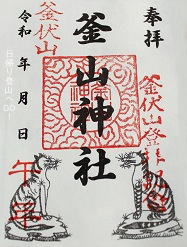 奉拝
釜伏山登拝
釜山神社
釜伏山
令和 年 月 日
日帰り登山へGO!